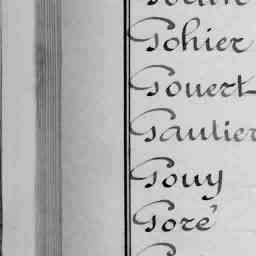 Gohier
Gouert
Gautier
Gouy
Goré